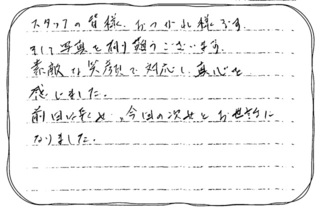 スタッフの皆様、おつかれ様です。
そして写真を有り難うございます。
素敵な笑顔で対応し真心を
感じました。
前回に、今回の次せとお世話に
なりました。